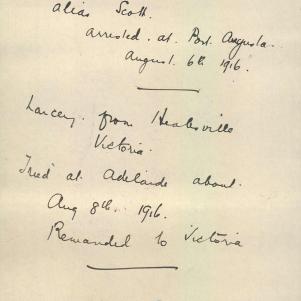 alias Scott.
arrested. at. Port. Augusta.
August. 6th 1916.
Larceny. from Healesville
Victoria.
Tried at Adelaide about.
Aug 8th. 1916.
Remanded to Victoria